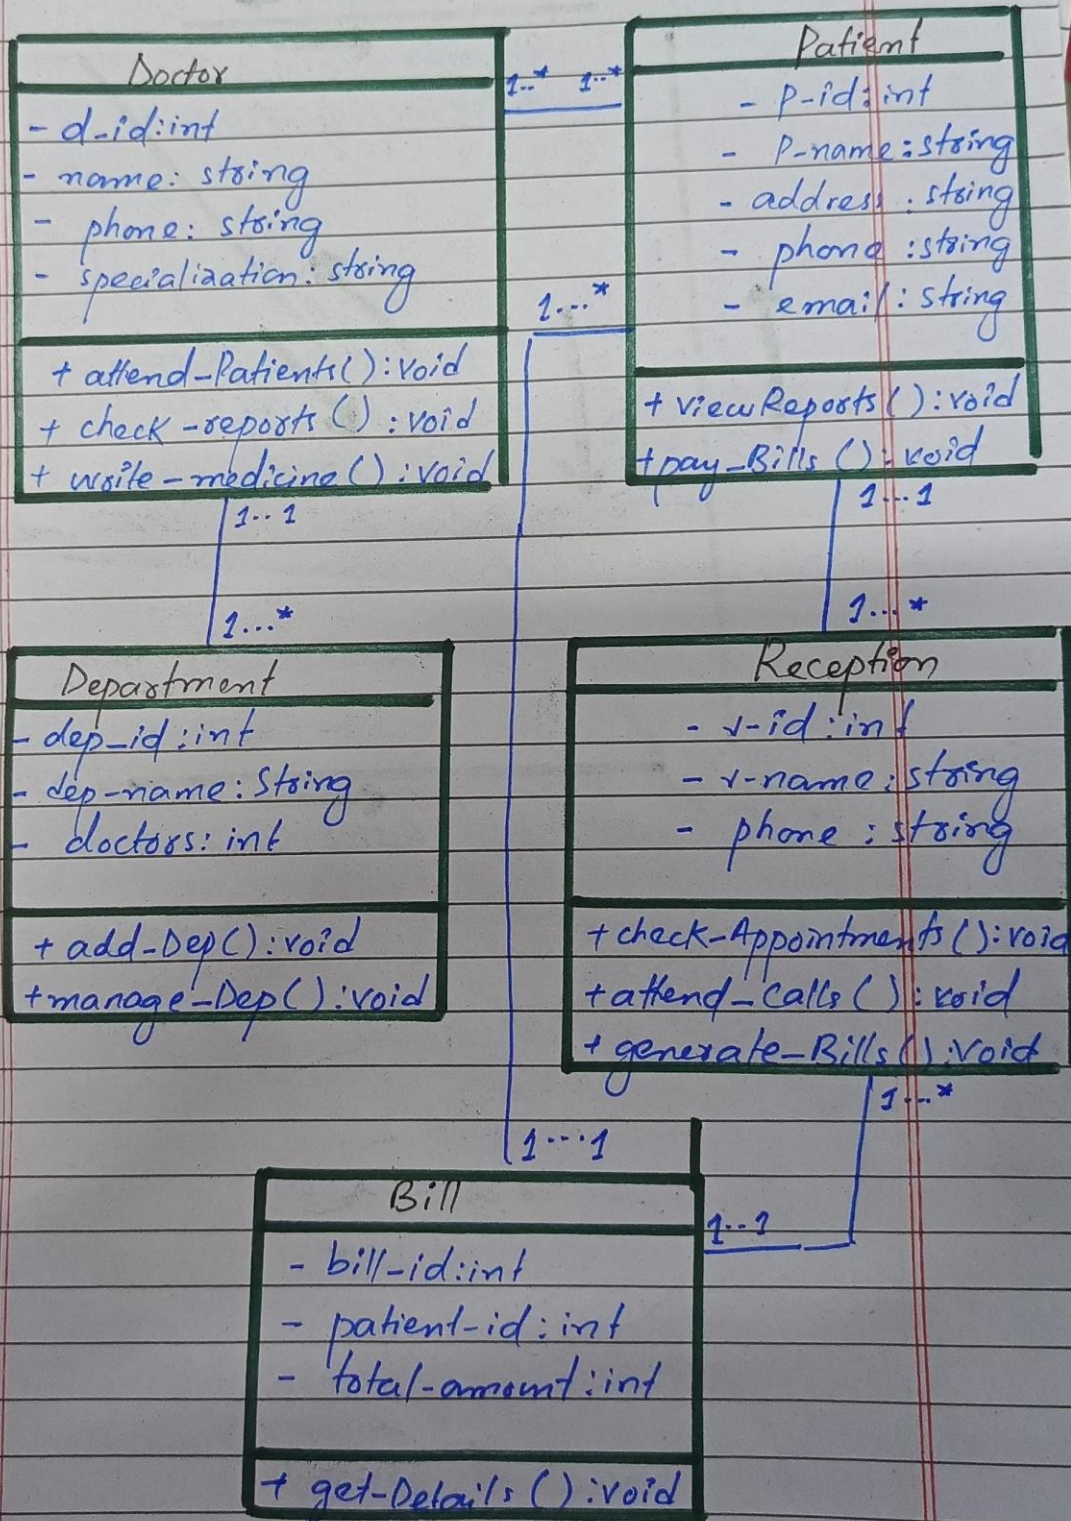 Doctor
- d-id:int
- name: string
- phone: string
- specialization: string
+ attend-Patients():void
+ check-reports():void
+ write-medicine():void
1..*
1..*
Patient
- P-id:int
- P-name:string
- address:string
- phone:string
- email:string
+ viewReports():void
+pay-Bills():void
1...*
1..1
1...*
1...1
1...*
Department
- dep-id:int
- dep-name:String
- doctors:int
+ add-Dep():void
+manage-Dep():void
Reception
- r-id:int
- r-name:string
- phone:string
+check-Appointments():void
+attend-Calls():void
+ generate-Bills():void
1...1
1...*
1..1
Bill
- bill-id:int
- patient-id:int
- total-amount:int
+ get-Details():void